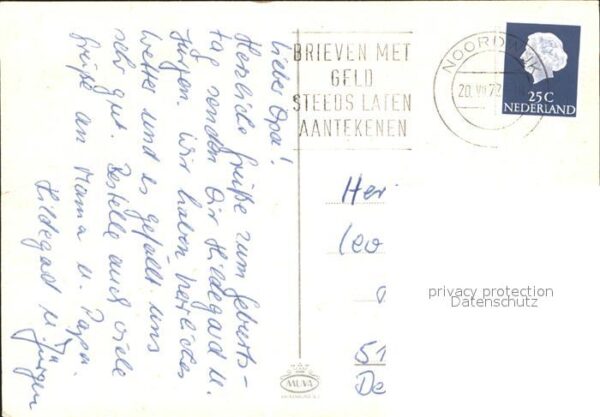 Lieber Opa!
Herzliche Grüße zum Geburts-
tag senden Dir Hildegard u.
Jürgen. Wir haben herrliches
Wetter und es gefällt uns
sehr gut. Bestelle auch viele
Grüße an Mama u. Papa.
Hildegard u. Jürgen
BRIEVEN MET
GELD
STEEDS LATEN
AANTEKENEN
NOORDWIJK
20. VII 72
25 C
NEDERLAND
Her
Leo
51
De
privacy protection
Datenschutz
MUVA